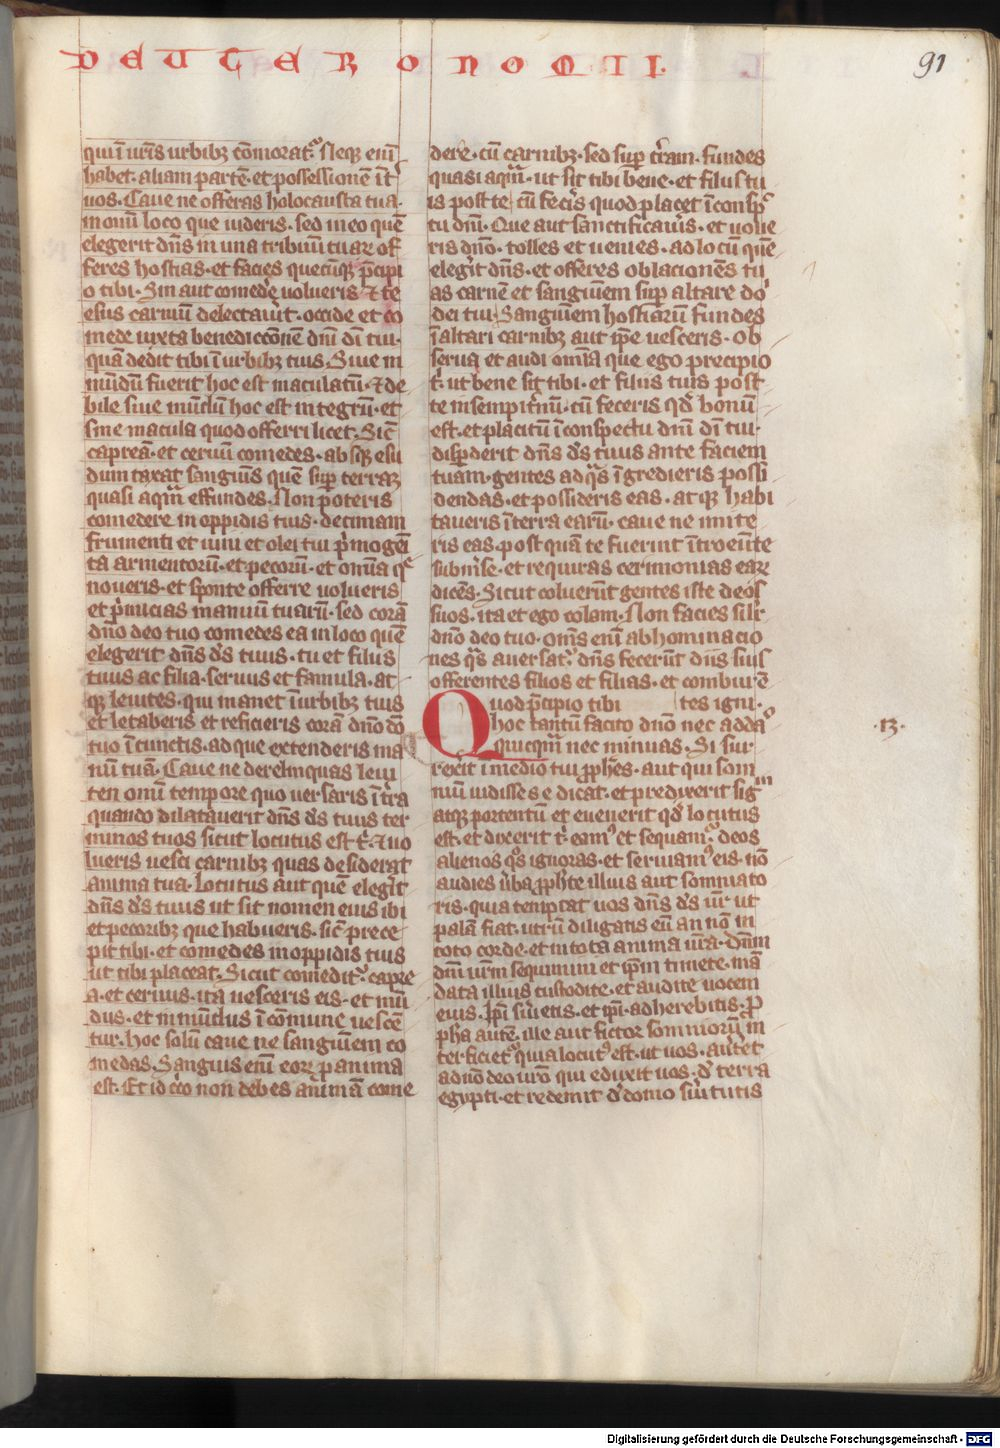 DEUTERONOMII.
91
qui ī ur̄is urbibꝫ cōmorat᷑. Neqꝫ enī
habet aliam partē et possessionē īt᷑
uos. Caue ne offeras holocausta tua
ī omnī loco que uideris. sed in eo quē
elegerit dn̄s in una tribuū tuaꝝ of
feres hostias. et facies quecūqꝫ p̄cipi
o tibi. Sin aut comede᷑ uolueris ⁊ te
esus carniū delectau͛it. occide et co
mede iuxta benediccōnē dn̄i dī tui.
quā dedit tibi ī urbibꝫ tuis. Siue in
mūdū fuerit hoc est maculatū. ⁊ de
bile siue mūdū hoc est integrū. et
sine macula quod offerri licet. Sic̄
capreā. et ceruū comedes. absqꝫ esu
dum taxat sanguīs quē suꝑ terraꝫ
quasi aqm̄ effundes. Non poteris
comedere in oppidis tuis. decimam
frumenti et uini et olei tui p͛mogēi
ta armentorū. et pecorū. et om̄ia q̄
noueris. et sponte offerre uolueris
et p͛micias manuū tuarū. sed corā
dn̄o deo tuo comedes ea in loco quē
elegerit dn̄s d͛s tuus. tu et filius
tuus ac filia. seruus et famula. at
qꝫ leuites. qui manet ī urbibꝫ tuis
et letaberis et reficieris corā dn̄o dō
tuo ī cunctis. ad que extenderis ma
nū tuā. Caue ne derelinquas leui
ten omī tempore quo uersaris ī t͛ra
quando dilatauerit dn̄s d͛s tuus ter
minos tuos sicut locutus est t͛. ⁊ uo
lueris uesci carnibꝫ quas desiderat
anima tua. Locutus aut quē elegi͛t
dn̄s d͛s tuus ut sit nomen eius ibi
et pecoribꝫ que habueris. sic̄ prece
pit tibi. et comedes in oppidis tuis
ut tibi placeat. Sicut comedit᷑ capre
a. et ceruus. ita uesceris eis. et mū
dus. et inmūdus ī comune uescē
tur. hoc solū caue ne sanguīem co
medas. Sanguis enī eoꝝ p anima
est. Et id cͦco non debes animā come
dere. cū carnibꝫ. sed suꝑ t͛ram. fundes
quasi aqm̄. ut sit tibi bene. et filiis tu
is post te cū fec͛is quod placet ī consp̄c
tu dn̄i. Que aut sanctificau͛is. et uoue
ris dn̄o. tolles et uenies. ad locū quē
elegi͛t dn̄s. et offeres oblacionēs tu
as carnē et sanguīem suꝑ altare do
dei tui Sanguīem hostiarū fūndes
ī altari carnibꝫ aut ip̄e uesceris. Ob
serua et audi om̄ia que ego precipio
t͛. ut bene sit tibi. et filiis tuis post
te in sempit͛nū. cū feceris qd̄ bonū
est. et placitū ī conspectu dn̄i dī tui.
disꝑderit dn̄s d͛s tuus ante faciem
tuam. gentes ad q͛s īgredieris possi
dendas. et possideris eas. atqꝫ habi
taueris ī terra earū. caue ne imite
ris eas. postquā te fuerint ītroeūte
subu͛se. et requiras cerimonias eaꝝ
dicēs. Sicut coluerūt gentes iste deos
suos. ita et ego colam. Non facies silr̄
dn̄o deo tuo. om̄s enī abhominacio
nes q͛s auersat᷑ dn̄s fecerūt diis suis
offerentes filios et filias. et comburē
Quod p̄cipio tibi tes igni.
hoc tantū facito dn̄o nec addas
quicqm̄ nec minuas. Si sur
rexit ī medio tui ꝓph̄es. aut qui som
niū uidisse se dicat. et predixerit sig
atqꝫ portentū et euenerit qd̄ locutus
est. et dixerit t͛. eam᷒ et sequam᷒ deos
alienos q͛s ignoras. et seruiam᷒ eis. nō
audies u͛ba ꝓph̄te illius aut somniato
ris. quia temptat uos dn̄s d͛s ur̄. ut
palā fiat. utrū diligatis eū an nō in
toto corde. et in tota anima ur̄a. Dn̄m
dm̄ ur̄m sequimini et ip̄m timete. mā
data illius custodite. et audite uocem
eius. Ip̄i su͛ietis. et ip̄i. adherebitis. P
ph̄a autē. ille aut fictor somniorū in
terficiet᷑. quia locut᷒ est. ut uos. au͛tet
a dn̄o deo ur̄o qui eduxit uos. d͛ terra
egypti. et redemit d͛ domo su͛itutis
.13.
Digitalisierung gefördert durch die Deutsche Forschungsgemeinschaft - DFG